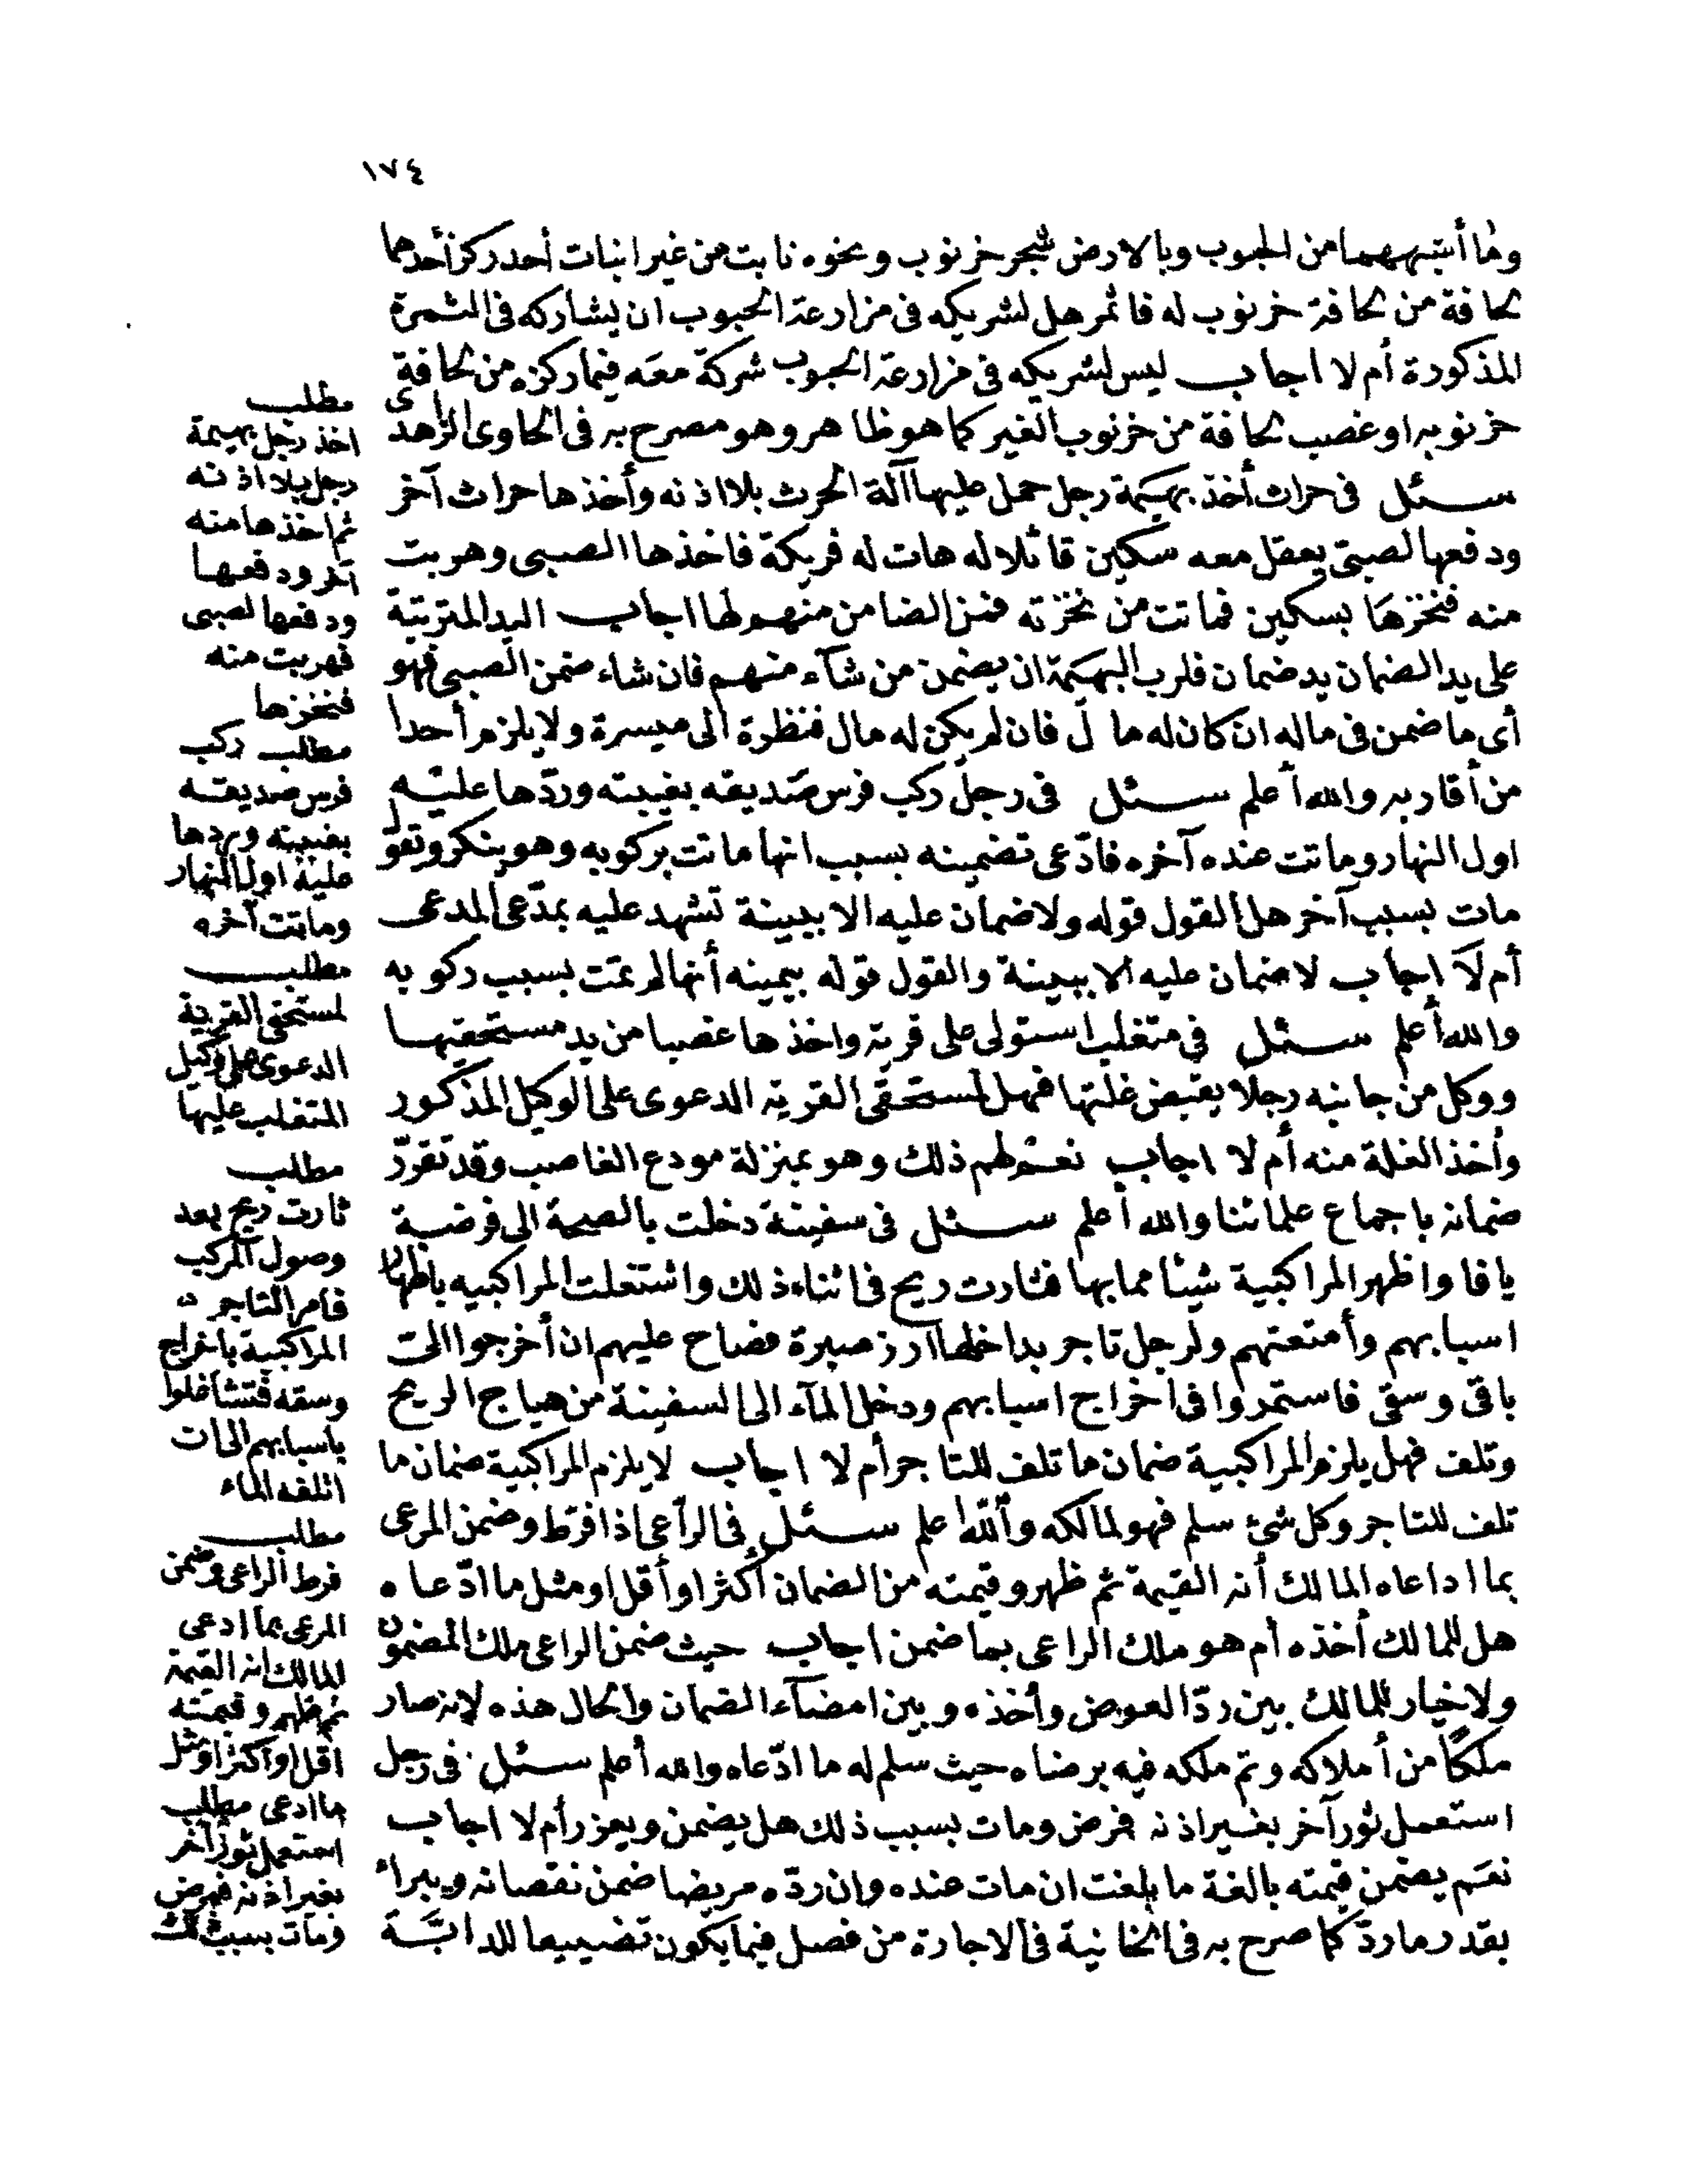 ١٧٤
وما أشبههما من الحبوب وبالارض شجر خرنوب ونحوه نابت من غير انبات أحد ركز أحدهما
نحافة من نحافة خرنوب له فاثمر هل لشريكه فى مزارعة الحبوب ان يشاركه فى الثمرة
المذكورة أم لا اجاب ليس لشريكه فى مزارعة الحبوب شركة معه فيما ركزه من نحافة
خرنوبه او غصب نحافة من خرنوب الغير كما هو ظاهر وهو مصرح به فى الحاوى الزاهدى
سئل فى حراث أخذ بهيمة رجل حمل عليها آلة الحرث بلا اذنه وأخذها حراث آخر
ودفعها لصبىّ يعقل معه سكين قائلا له هات له فريكة فاخذها الصبى وهربت
منه فنخزها بسكين فماتت من نخزته فمن الضامن منهم لها اجاب اليد المترتبة
على يد الضمان يد ضمان فلرب البهيمة ان يضمن من شآء منهم فان شاء ضمن الصبى فهو
أى ما ضمن فى ماله ان كان له مال فان لم يكن له مال فنظرة الى ميسرة ولا يلزم أحدا
من أقاربه والله أعلم سئل فى رجل ركب فرس صديقه بغيبته وردّها عليه
اول النهار وماتت عنده آخره فادّعى تضمينه بسبب انها ماتت بركوبه وهو ينكر ويقول
مات بسبب آخر هل القول قوله ولا ضمان عليه الا ببينة تشهد عليه بمدّعى المدعى
أم لا اجاب لا ضمان عليه الا ببينة والقول قوله بيمينه أنها لم تمت بسبب ركوبه
والله أعلم سئل فى متغلب استولى على قرية واخذها غصبا من يد مستحقيها
ووكل من جانبه رجلا يقبض غلتها فهل لمستحقى القرية الدعوى على الوكيل المذكور
وأخذ الغلة منه أم لا اجاب نعم لهم ذلك وهو بمنزلة مودع الغاصب وقد تقرّر
ضمانه باجماع علمائنا والله أعلم سئل فى سفينة دخلت بالصحة الى فرضة
يافا واظهر المراكبية شيئا مما بها فثارت ريح فى اثناء ذلك واشتغلت المراكبيه باظهار
اسبابهم وأمتعتهم ولرجل تاجر بداخلها ارز صبرة فصاح عليهم ان أخرجوا الىّ
باقى وسقى فاستمروا فى اخراج اسبابهم ودخل المآء الى السفينة من هياج الريح
وتلف فهل يلزم المراكبية ضمان ما تلف للتاجر أم لا اجاب لا يلزم المراكبية ضمان ما
تلف للتاجر وكل شئ سلم فهو لمالكه والله اعلم سئل فى الراعى اذا فرّط وضمن المرعى
بما اداعاه المالك أنه القيمة ثم ظهر وقيمته من الضمان أكثر او أقل او مثل ما ادّعاه
هل للمالك أخذه أم هو ملك الراعى بما ضمن اجاب حيث ضمن الراعى ملك المضمون
ولا خيار للمالك بين ردّ العوض وأخذه وبين امضآء الضمان والحال هذه لانه صار
ملكا من أملاكه وتم ملكه فيه برضاه حيث سلم له ما ادّعاه والله أعلم سئل فى رجل
استعمل ثور آخر بغير اذنه فمرض ومات بسبب ذلك هل يضمن ويعزر أم لا اجاب
نعم يضمن قيمته بالغة ما بلغت ان مات عنده وان ردّه مريضا ضمن نقصانه ويبراء
بقدر ما ردّ كما صرح به فى الخانية فى الاجارة من فصل فيما يكون تضييعا للدابّة
مطلب
اخذ رجل بهيمة
رجل بلا اذنه
ثم اخذها منه
آخر ودفعها
ودفعها لصبى
فهربت منه
فنخزها
مطلب ركب
فرس صديقه
بغيبته وردها
عليه اول النهار
وماتت آخره
مطلب
لمستحقى القرية
الدعوى على وكيل
المتغلب عليها
مطلب
ثارت ريح بعد
وصول المركب
فامر التاجر
المراكبية باخراج
وسقه فتشاغلوا
باسبابهم الى ان
اتلفه الماء
مطلب
فرط الراعى وضمن
المرعى بما ادعى
المالك انه القيمة
ثم ظهر وقيمته
اقل او اكثر او مثل
ما ادعى مطلب
استعمل ثور آخر
بغير اذنه فمرض
ومات بسبب ذلك